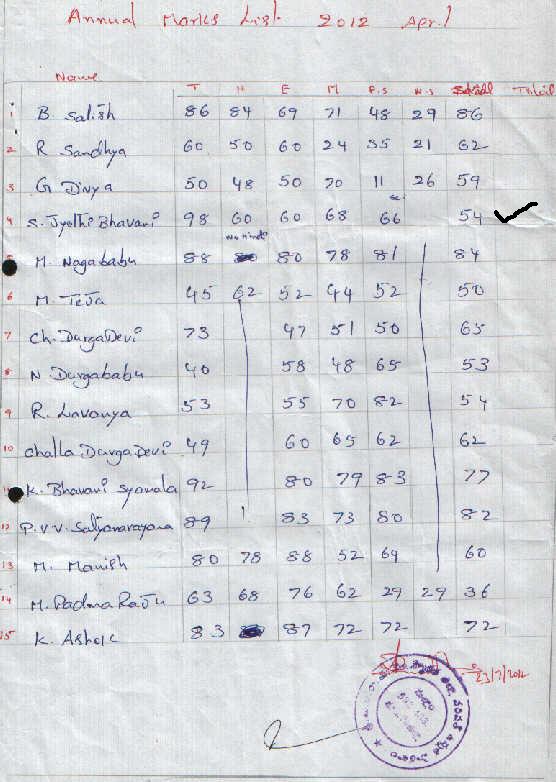 Annual Marks List 2012 April
Name T H E M P.S N.S Social Total
1 B Satish 86 84 69 71 48 29 86
2 R Sandhya 60 50 60 24 35 21 62
3 G Divya 50 48 50 70 11 26 59
4 S. Jyothi Bhavani 98 60 60 68 66 54
5 M. Nagababu 88 80 78 81 84
6 M. Teja 45 62 52 44 52 50
7 Ch. Durga Devi 73 47 51 50 65
8 N Durgababu 40 58 48 65 53
9 R. Lavanya 53 55 70 82 54
10 Challa Durga Devi 49 60 65 62 62
11 K. Bhavani Syamala 92 80 79 83 77
12 P.V.V. Satyanarayana 89 83 73 80 82
13 M. Manish 80 78 88 52 69 60
14 M. Padma Raju 63 68 76 62 29 29 36
15 K. Ashok 83 87 72 72 72
23/7/2012